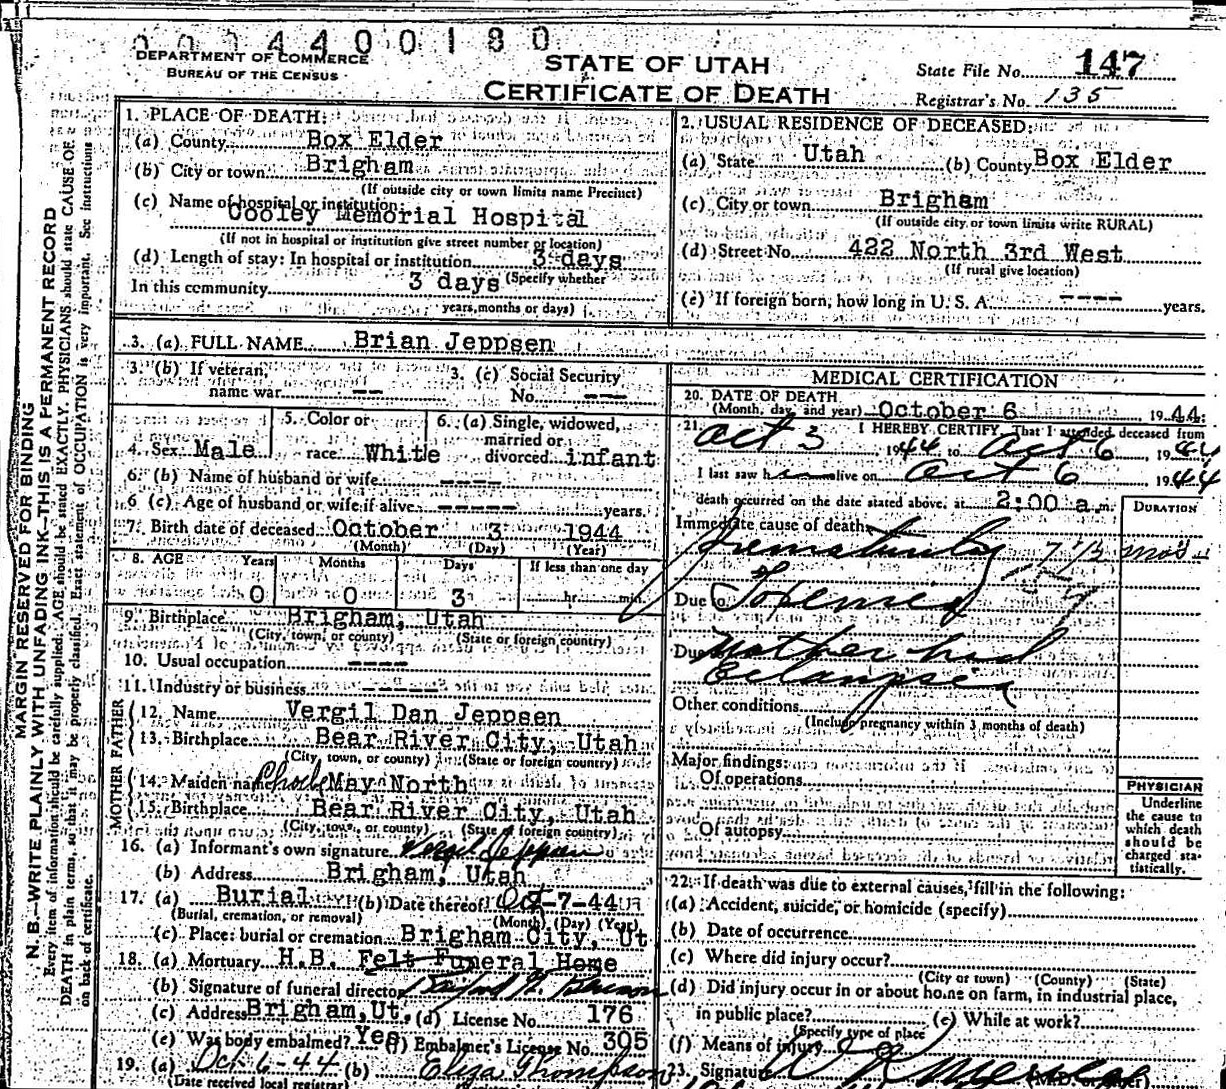 0004400180
DEPARTMENT OF COMMERCE
BUREAU OF THE CENSUS
STATE OF UTAH
CERTIFICATE OF DEATH
State File No. 147
Registrar's No. 135
MARGIN RESERVED FOR BINDING
N. B.—WRITE PLAINLY WITH UNFADING INK—THIS IS A PERMANENT RECORD
Every item of information should be carefully supplied. AGE should be stated EXACTLY. PHYSICIANS should state CAUSE OF
DEATH in plain terms, so that it may be properly classified. Exact statement of OCCUPATION is very important. See instructions
on back of certificate.
1. PLACE OF DEATH:
(a) County Box Elder
(b) City or town Brigham
(If outside city or town limits name Precinct)
(c) Name of hospital or institution:
Cooley Memorial Hospital
(If not in hospital or institution give street number or location)
(d) Length of stay: In hospital or institution 3 days
In this community 3 days (Specify whether
years, months or days)
2. USUAL RESIDENCE OF DECEASED:
(a) State Utah (b) County Box Elder
(c) City or town Brigham
(If outside city or town limits write RURAL)
(d) Street No. 422 North 3rd West
(If rural give location)
(e) If foreign born, how long in U. S. A. ---- years.
3. (a) FULL NAME Brian Jeppsen
3. (b) If veteran, name war --
3. (c) Social Security No. ---
4. Sex Male
5. Color or race White
6. (a) Single, widowed, married or divorced infant
6. (b) Name of husband or wife ----
6 (c) Age of husband or wife if alive ----- years.
7. Birth date of deceased October 3 1944
(Month) (Day) (Year)
8. AGE Years Months Days If less than one day
0 0 3 hr. min.
9. Birthplace Brigham, Utah
(City, town, or county) (State or foreign country)
10. Usual occupation ----
11. Industry or business -----
FATHER
12. Name Vergil Dan Jeppsen
13. Birthplace Bear River City, Utah
(City, town, or county) (State or foreign country)
MOTHER
14. Maiden name Phoebe May North
15. Birthplace Bear River City, Utah
(City, town, or county) (State or foreign country)
16. (a) Informant's own signature Vergil Jeppsen
(b) Address Brigham, Utah
17. (a) Burial (b) Date thereof Oct-7-44
(Burial, cremation, or removal) (Month) (Day) (Year)
(c) Place: burial or cremation Brigham City, Ut
18. (a) Mortuary H.B. Felt Funeral Home
(b) Signature of funeral director
(c) Address Brigham, Ut. (d) License No. 176
(e) Was body embalmed? Yes (f) Embalmer's License No. 305
19. (a) Oct-6-44 (b) Eliza Thompson
(Date received local registrar)
MEDICAL CERTIFICATION
20. DATE OF DEATH
(Month, day, and year) October 6 1944
21. I HEREBY CERTIFY, That I attended deceased from
Oct 3 1944 to Oct 6, 1944
I last saw him alive on Oct 6 1944
death occurred on the date stated above, at 2:00 a m.
DURATION
Immediate cause of death
Prematurity 7 1/2 mos
Due to Toxemia
Due to Mother had
Eclampsia
Other conditions
(Include pregnancy within 3 months of death)
Major findings:
Of operations
Of autopsy
PHYSICIAN
Underline
the cause to
which death
should be
charged sta-
tistically.
22. If death was due to external causes, fill in the following:
(a) Accident, suicide, or homicide (specify)
(b) Date of occurrence
(c) Where did injury occur?
(City or town) (County) (State)
(d) Did injury occur in or about home on farm, in industrial place,
in public place? (e) While at work?
(Specify type of place
(f) Means of injury
23. Signature